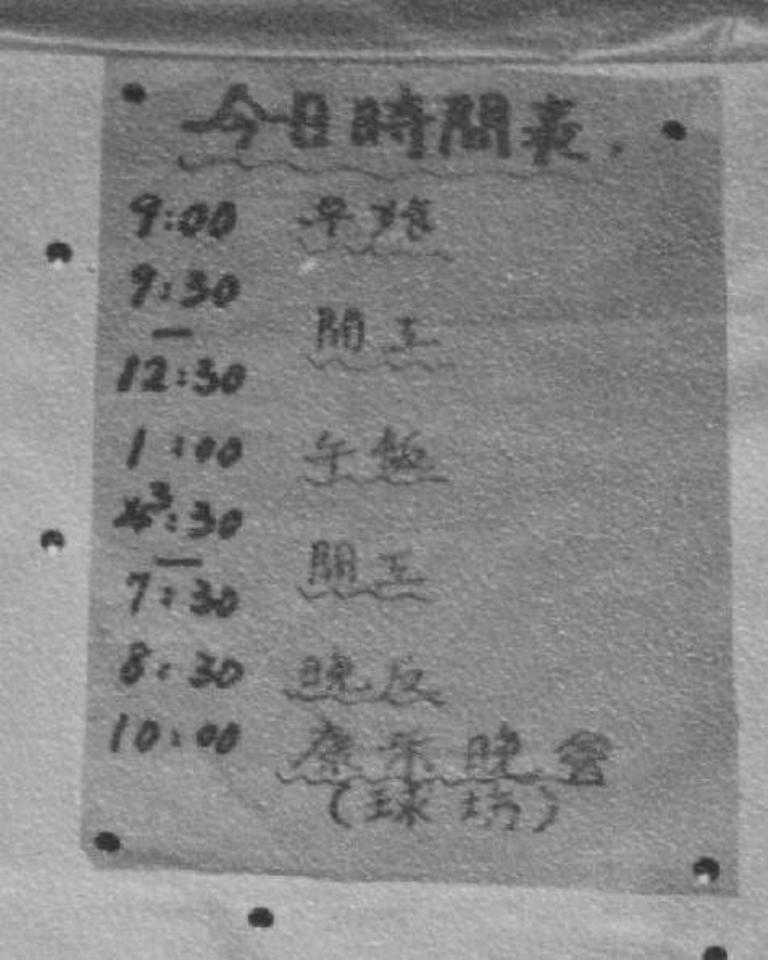 今日時間表.
9:00 早操
9:30
— 開工
12:30
1:00 午飯
3:30
— 開工
7:30
8:30 晚反
10:00 康乐晚會
(球坊)